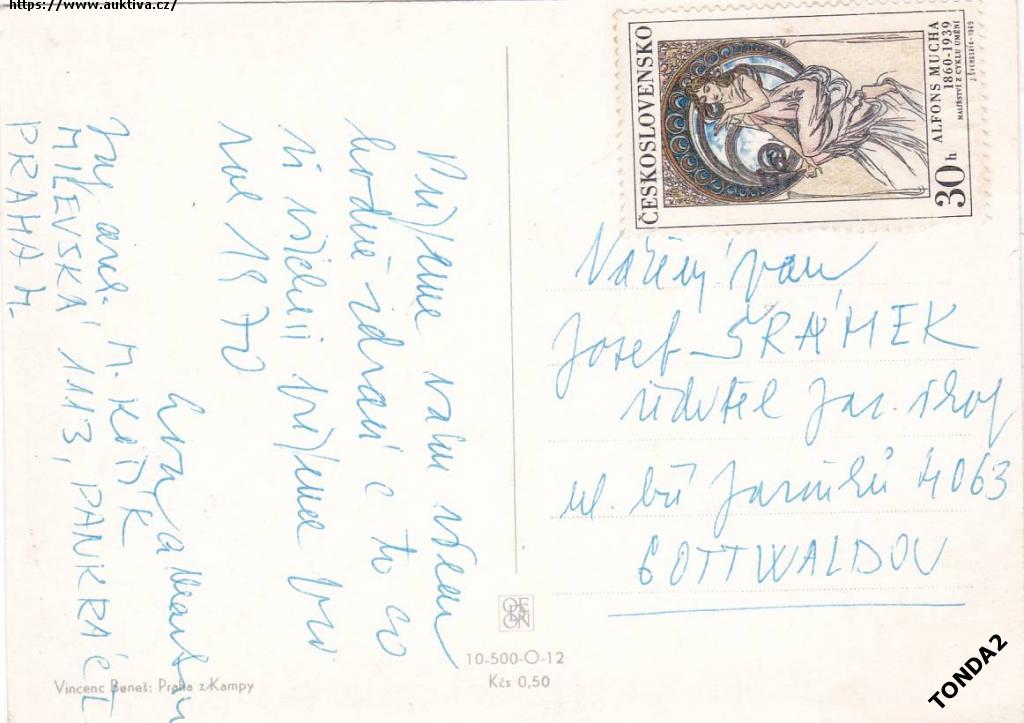 https://www.auktiva.cz/
ČESKOSLOVENSKO
30 h
ALFONS MUCHA
1860-1939
MALÍŘSTVÍ Z CYKLU UMĚNÍ
J. ŠVENGSBÍR - 1969
Přejeme vám všem
hodně zdraví a to co
si všichni přejeme pro
rok 1970
a
M. KOTÍK
MILEVSKÁ 1113, PANKRÁC
PRAHA 4.
Vážený pan
Josef ŠRÁMEK
ředitel
ul. bří Jaroňků 4063
GOTTWALDOV
ODEON
10-500-O-12
Kčs 0,50
Vincenc Beneš: Praha z Kampy
TONDA2